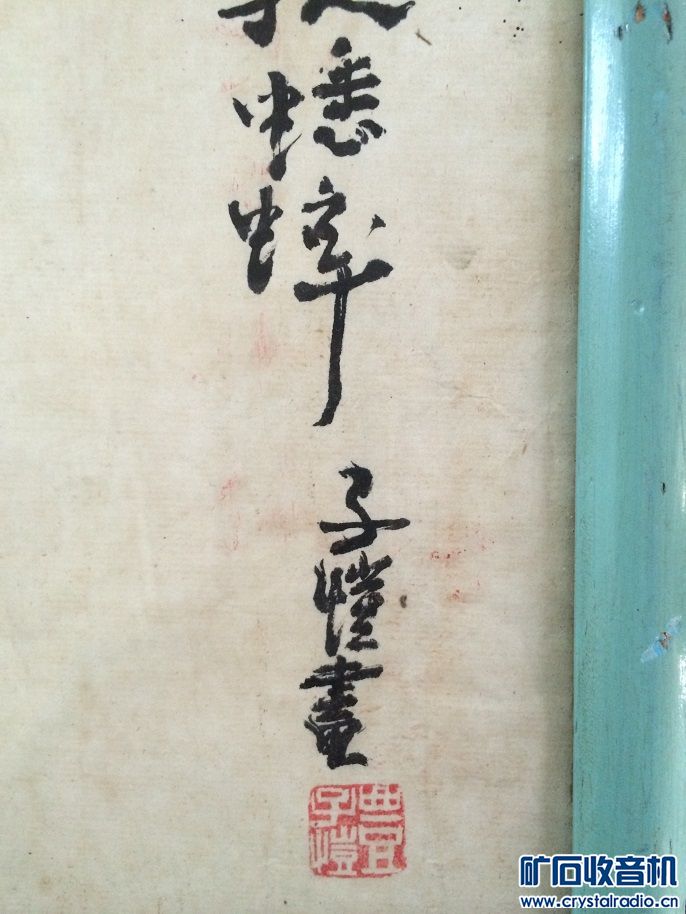 蟋蟀
子愷畫
豐子愷
矿石收音机
www.crystalradio.cn